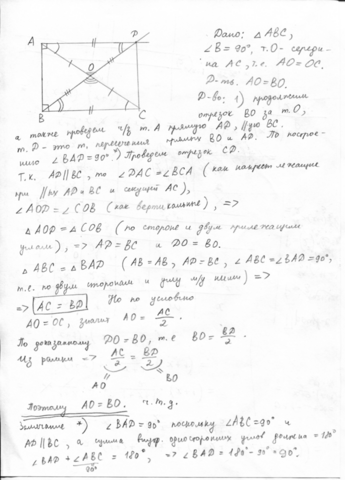 A
D
O
B
C
Дано: △ABC,
∠B = 90°, т.O - середи-
на AC, т.е. AO = OC.
Д-ть: AO = BO.
Д-во: 1) продолжим
отрезок BO за т.O,
а также проведем ч/з т. A прямую AD, ∥ую BC.
т. D - это т. пересечения прямых BO и AD. По построе-
нию ∠BAD = 90° *) Проведем отрезок CD.
Т.к. AD ∥ BC, то ∠DAC = ∠BCA (как накрест лежащие
при ∥ых AD и BC и секущей AC),
∠AOD = ∠COB (как вертикальные), =>
△AOD = △COB (по стороне и двум прилежащим
углам), => AD = BC и DO = BO.
△ABC = △BAD (AB = AB, AD = BC, ∠ABC = ∠BAD = 90°,
т.е. по двум сторонам и углу м/у ними) =>
=> AC = BD Но по условию
AO = OC, значит AO = AC/2.
По доказанному DO = BO, т.е BO = BD/2.
Из равенств => AC/2 = BD/2
AO BO
Поэтому AO = BO. ч.т.д.
Замечание *) ∠BAD = 90° поскольку ∠ABC = 90° и
AD ∥ BC, а сумма внутр. односторонних углов должна = 180°
∠BAD + ∠ABC = 180°, => ∠BAD = 180° - 90° = 90°.
90°